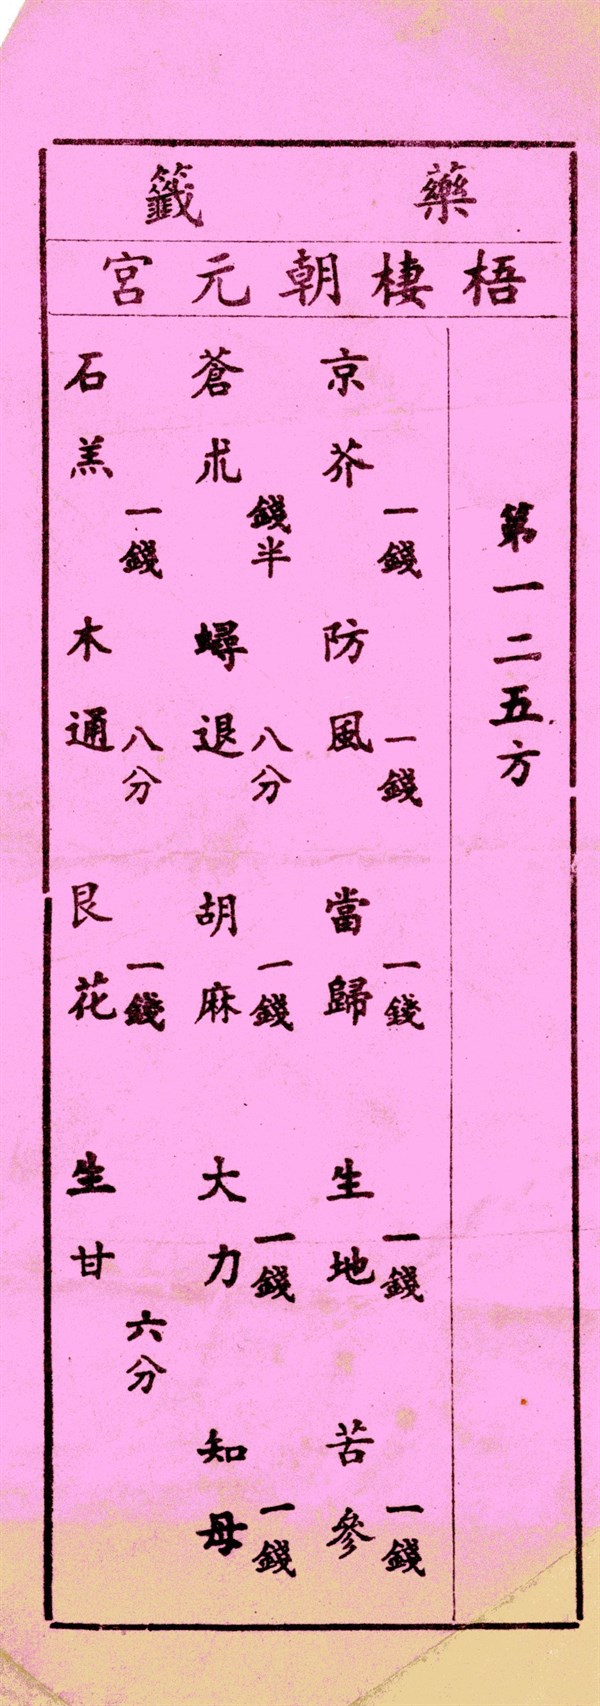 藥籤
梧棲朝元宮
第一二五方
京芥一錢 防風一錢 當歸一錢 生地一錢 苦參一錢
蒼朮錢半 蟳退八分 胡麻一錢 大力一錢 知母一錢
石羔一錢 木通八分 艮花一錢 生甘六分